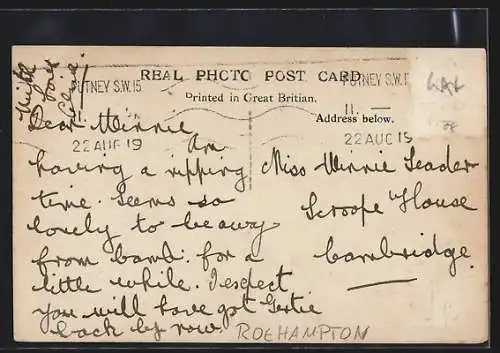 With
love
Elsie
PUTNEY S.W.15
PUTNEY S.W.1
REAL PHOTO POST CARD
Printed in Great Britian.
Address below.
11 —
22 AUG 19
22 AUG 19
Dear Winnie
Am
having a ripping
time. Seems so
lovely to be away
from band. for a
little while. I expect
you will have got Gertie
back by now.
Miss Winnie Leader
Scroope House
Cambridge
ROEHAMPTON